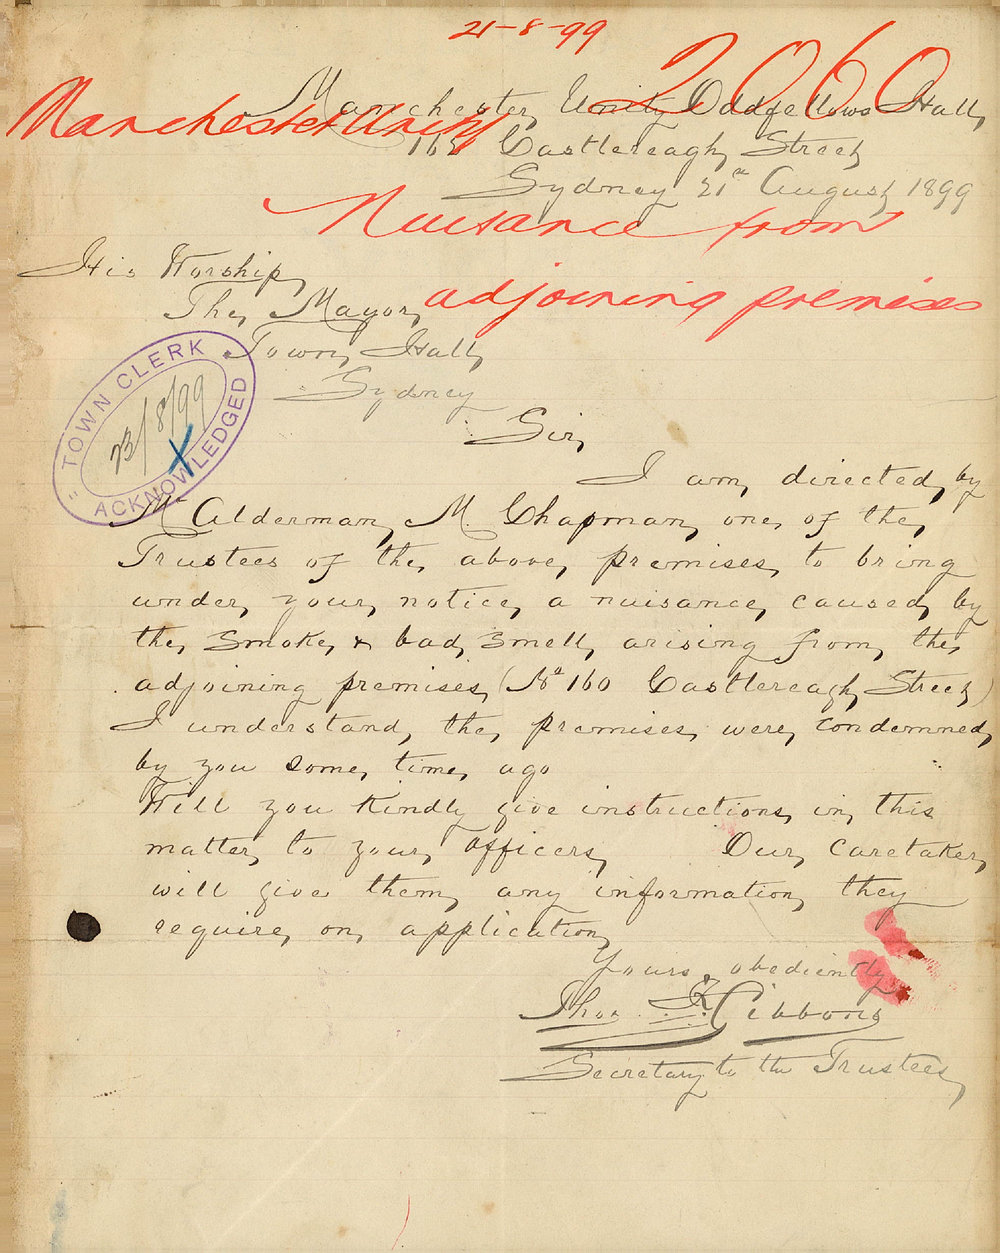 21-8-99
2060
Manchester Unity Oddfellows Hall,
Manchester Unity
Castlereagh Street
Sydney 21st August 1899
Nuisance from
His Worship,
The Mayor,
adjoining premises
Town Hall,
Sydney
TOWN CLERK
23/8/99
X
ACKNOWLEDGED
Sir,
I am directed by
Mr Alderman M. Chapman one of the
Trustees of the above premises to bring
under your notice a nuisance caused by
the smoke & bad smell arising from the
adjoining premises (No 160 Castlereagh Street)
I understand the premises were condemned
by you some time ago
Will you kindly give instructions in this
matter to your officers, Our caretaker
will give them any information they
require on application
Yours obediently
Thos. Gibbons
Secretary to the Trustees,